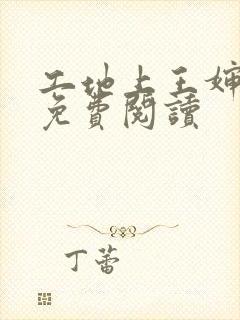 工地上王婶
免費閱讀
丁蕾